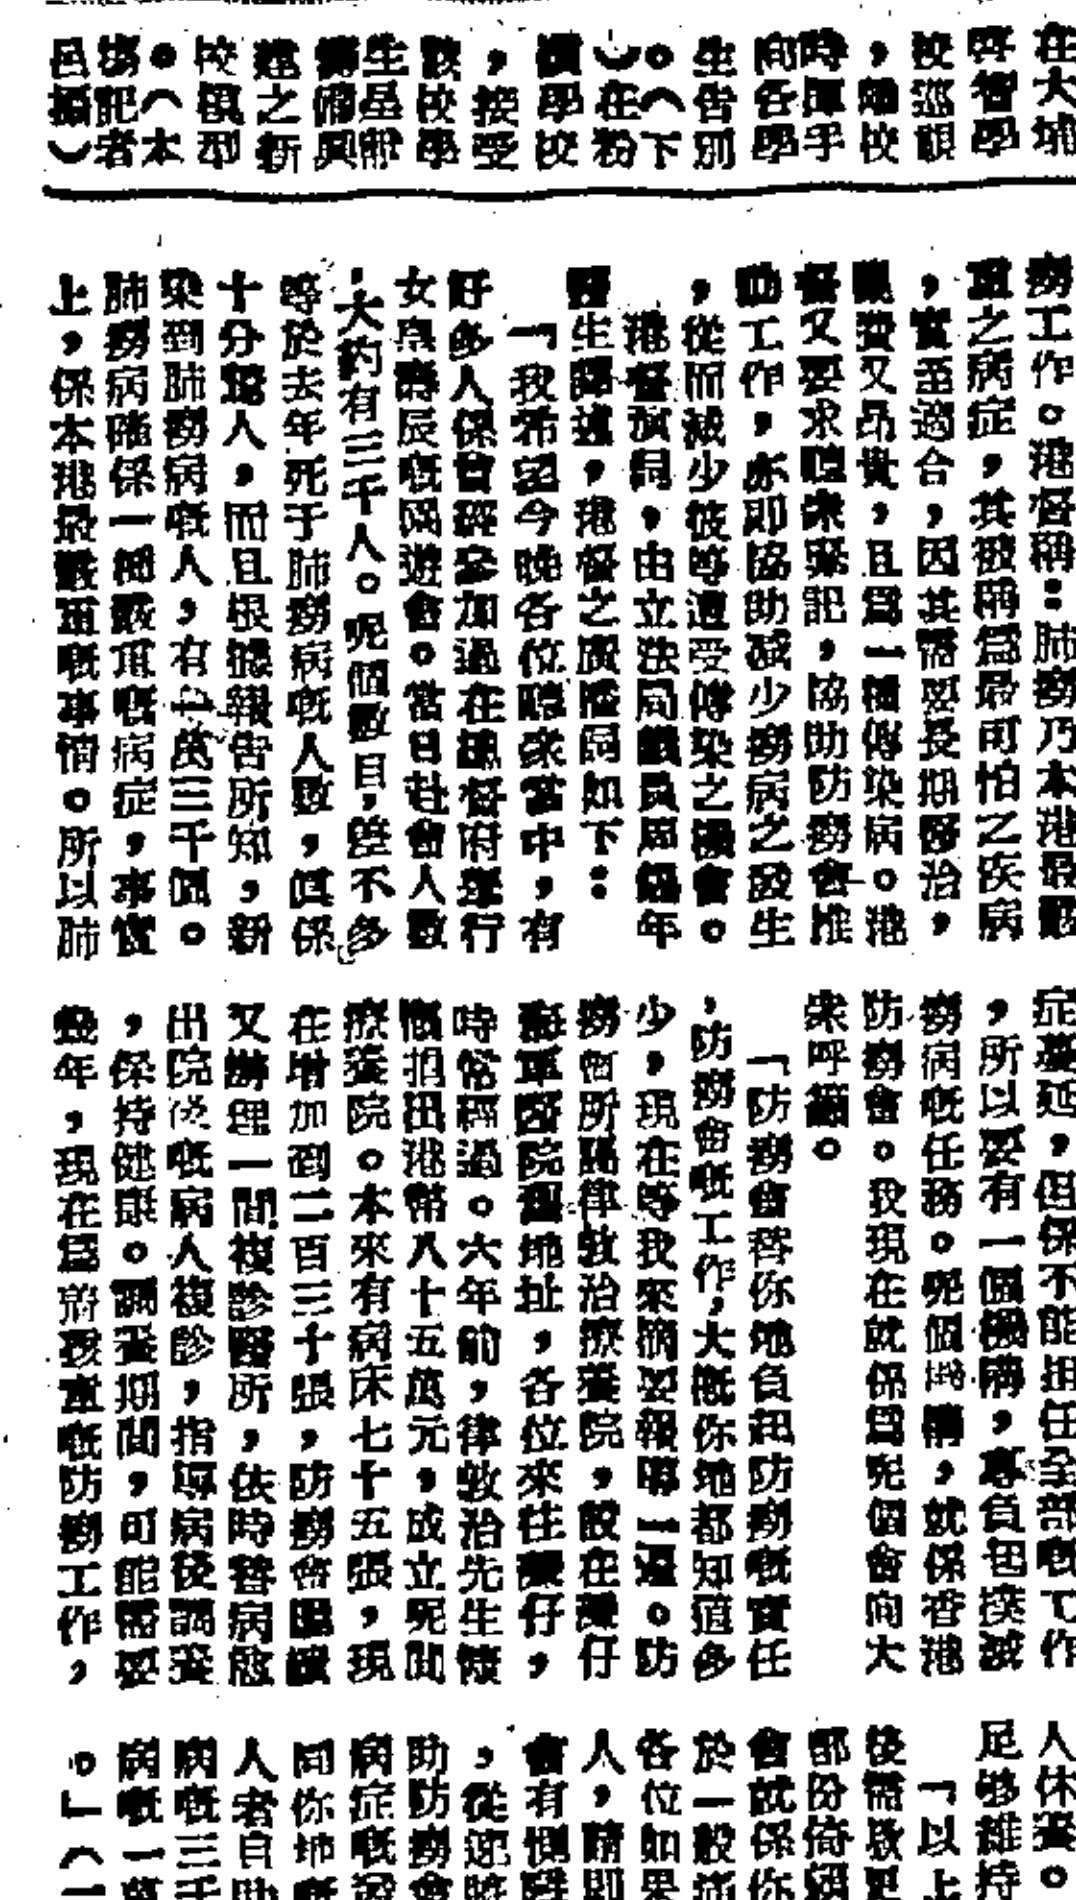 在大埔
啓智學
校巡視
，離校
時揮手
向各學
生告別
。（下
）在粉
嶺學校
，接受
該校學
生呈獻
籌備興
建之新
校模型
。（本
塲記者
邑攝）
癆工作。港督稱：肺癆乃本港最嚴
重之病症，其被稱爲最可怕之疾病
，實至適合，因其需要長期醫治，
藥費又昂貴，且爲一種傳染病。港
督又要求聽衆緊記，協助防癆會推
動工作，亦即協助減少癆病之發生
，從而減少彼等遭受傳染之機會。
港督演詞，由立法局議員周錫年
醫生譯述，港督之廣播詞如下：
「我希望今晚各位聽衆當中，有
好多人係曾經參加過在總督府舉行
女皇壽辰嘅園遊會。當日赴會人數
，大約有三千人。呢個數目，差不多
等於去年死于肺癆病嘅人數，眞係
十分驚人，而且根據報告所知，新
染到肺癆病嘅人，有一萬三千個。
肺癆病確係一種嚴重嘅病症，事實
上，係本港最嚴重嘅事情。所以肺
症蔓延，但係不能担任全部嘅工作
，所以要有一個機構，專負包撲滅
癆病嘅任務。呢個機構，就係香港
防癆會。我現在就係爲呢個會向大
衆呼籲。
「防癆會替你地負起防癆嘅責任
，防癆會嘅工作，大概你地都知道多
少，現在等我來摘要報吿一遍。防
癆會所屬律敦治療養院，設在灣仔
海軍醫院舊地址，各位來往灣仔，
時常經過。六年前，律敦治先生慷
慨捐出港幣八十五萬元，成立呢間
療養院。本來有病床七十五張，現
在增加到二百三十張，防癆會繼續
又辦理一間複診醫所，依時替病愈
出院後嘅病人複診，指導病後調養
，保持健康。調養期間，可能需要
幾年，現在爲嚴重嘅防癆工作，
人休養。
足够維持
「以上
後需款更
部份倚賴
會就係你
於一般
各位如果
人，請即
會有惻隱
，從速將
助防癆會
病症嘅
同你地嘅
人者自助
病嘅三千
病嘅一萬
。」（一